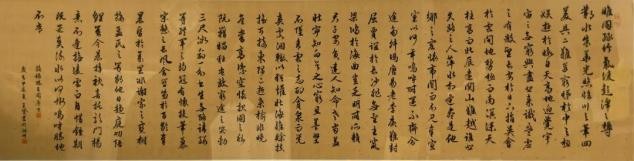 睢園綠竹氣凌彭澤之樽
鄴水朱華光照臨川之筆四
美具二難并窮睇眄於中天極
娛遊於暇日天高地迥覺宇
宙之無窮興盡悲來識盈虛
之有數望長安於日下指吳會
於雲間地勢極而南溟深天
柱高而北辰遠關山難越誰悲
失路之人萍水相逢盡是他
鄉之客懷帝閽而不見奉宣室
以何年嗚呼時運不齊命
途多舛馮唐易老李廣難封
屈賈誼於長沙非無聖主竄
梁鴻於海曲豈乏明時所賴
君子安貧達人知命老當益
壯寧知白首之心窮且益堅
不墜青雲之志酌貪泉而覺
爽處涸轍以猶懽北海雖賒扶
搖可接東隅已逝桑榆非晚
孟嘗高潔空懷報國之心
阮籍猖狂豈效窮途之哭勃
三尺微命一介書生無路請纓
等終軍之弱冠有懷投筆慕
宗愨之長風舍簪笏於百齡奉
晨昏於萬里非謝家之寶樹
接孟氏之芳鄰他日趨庭叨陪
鯉對今晨捧袂喜託龍門楊
意不逢撫凌雲而自惜鍾期
既遇奏流水以何慚嗚呼勝地
不常